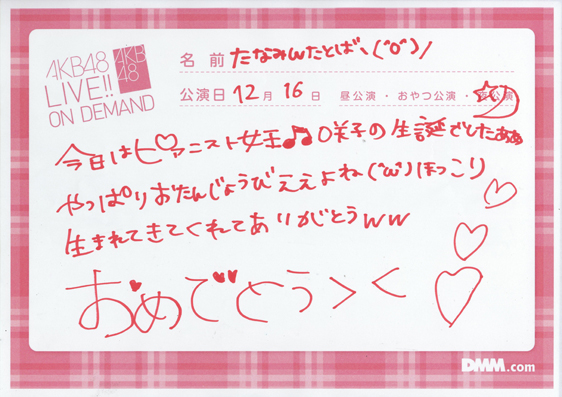 AKB48
LIVE!!
ON DEMAND
AKB
48
名前 たなみんたとばヽ(^o^)/
公演日 12月16日 昼公演・おやつ公演・夜公演
今日はピアニスト女王♫♪咲子の生誕でしたぁぁ
やっぱりおたんじょうびええよね(^ω^)ほっこり
生まれてきてくれてありがとうww
おめでとう><
DMM.com